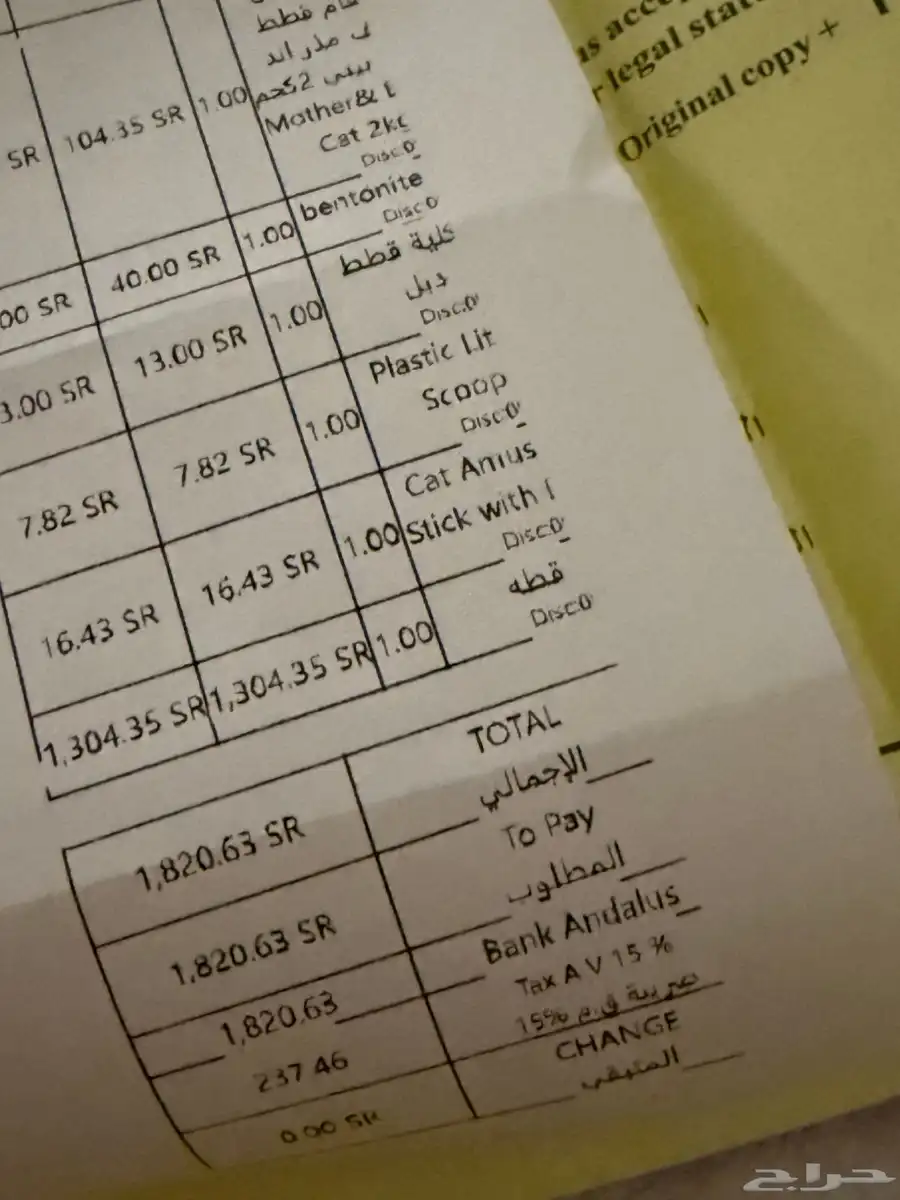 طعام قطط
مذر اند
بيبي 2كجم
Mother&
Cat 2kg
Disc0
SR 104.35 SR 1.00
bentonite
Disc0
00 SR 40.00 SR 1.00
قطط
دبل
Disc0
3.00 SR 13.00 SR 1.00
Plastic Lit
Scoop
Disc0
7.82 SR 7.82 SR 1.00
Cat Amus
Stick with
Disc0
16.43 SR 16.43 SR 1.00
قطه
Disc0
1,304.35 SR 1,304.35 SR 1.00
TOTAL
الإجمالي
1,820.63 SR
To Pay
المطلوب
1,820.63 SR
Bank Andalus
1,820.63
Tax A V 15 %
ضريبة ق.م 15%
237.46
CHANGE
المتبقي
0.00 SR
legal stat
Original copy +
حراج